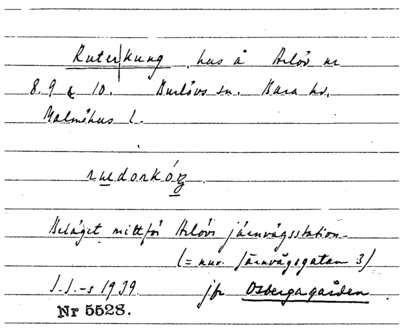 Ruter|kung hus å Arlöv nr
8. 9 & 10. Burlövs sn. Bara hd.
Malmöhus l.
rudorkóŋ
Beläget mittför Arlövs järnvägsstation.
(= nuv. Järnvägsgatan 3)
I.I.-s 1939. jfr Osbergagården
Nr 5528.